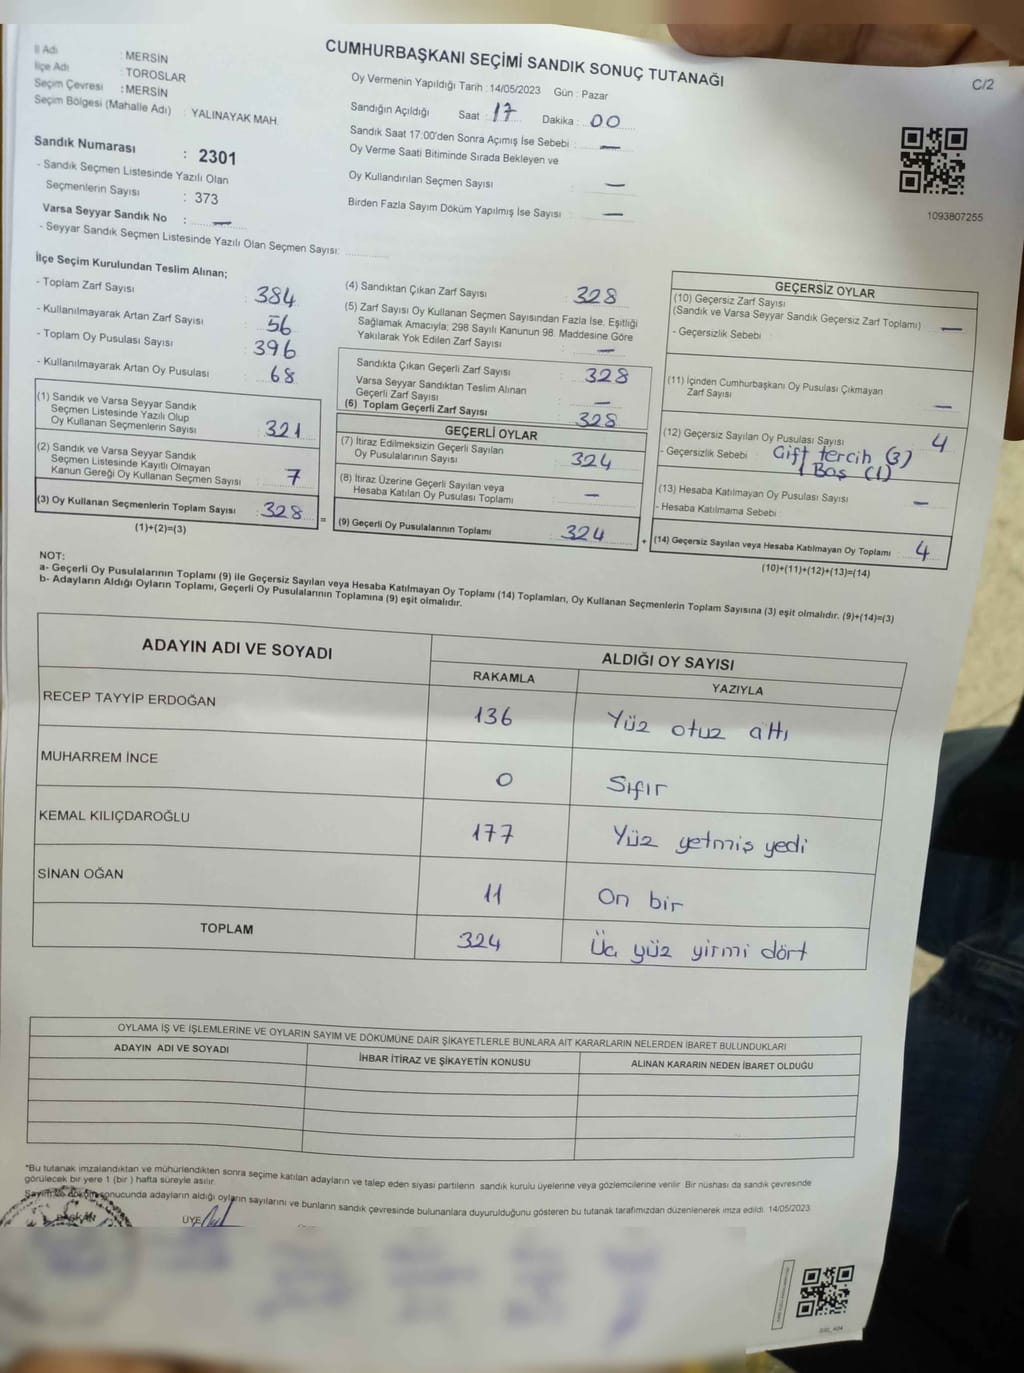 CUMHURBAŞKANI SEÇİMİ SANDIK SONUÇ TUTANAĞI
C/2
İl Adı : MERSİN
İlçe Adı : TOROSLAR
Seçim Çevresi : MERSİN
Seçim Bölgesi (Mahalle Adı) : YALINAYAK MAH.
Sandık Numarası : 2301
- Sandık Seçmen Listesinde Yazılı Olan
Seçmenlerin Sayısı : 373
Varsa Seyyar Sandık No : —
- Seyyar Sandık Seçmen Listesinde Yazılı Olan Seçmen Sayısı:
Oy Vermenin Yapıldığı Tarih : 14/05/2023 Gün : Pazar
Sandığın Açıldığı Saat : 17 Dakika : 00
Sandık Saat 17:00'den Sonra Açımış İse Sebebi : —
Oy Verme Saati Bitiminde Sırada Bekleyen ve
Oy Kullandırılan Seçmen Sayısı : —
Birden Fazla Sayım Döküm Yapılmış İse Sayısı : —
1093807255
İlçe Seçim Kurulundan Teslim Alınan;
- Toplam Zarf Sayısı : 384
- Kullanılmayarak Artan Zarf Sayısı : 56
- Toplam Oy Pusulası Sayısı : 396
- Kullanılmayarak Artan Oy Pusulası : 68
(1) Sandık ve Varsa Seyyar Sandık
Seçmen Listesinde Yazılı Olup
Oy Kullanan Seçmenlerin Sayısı : 321
(2) Sandık ve Varsa Seyyar Sandık
Seçmen Listesinde Kayıtlı Olmayan
Kanun Gereği Oy Kullanan Seçmen Sayısı : 7
(3) Oy Kullanan Seçmenlerin Toplam Sayısı : 328
(1)+(2)=(3)
(4) Sandıktan Çıkan Zarf Sayısı : 328
(5) Zarf Sayısı Oy Kullanan Seçmen Sayısından Fazla İse, Eşitliği
Sağlamak Amacıyla; 298 Sayılı Kanunun 98. Maddesine Göre
Yakılarak Yok Edilen Zarf Sayısı : —
Sandıkta Çıkan Geçerli Zarf Sayısı : 328
Varsa Seyyar Sandıktan Teslim Alınan
Geçerli Zarf Sayısı : —
(6) Toplam Geçerli Zarf Sayısı : 328
GEÇERLİ OYLAR
(7) İtiraz Edilmeksizin Geçerli Sayılan
Oy Pusulalarının Sayısı : 324
(8) İtiraz Üzerine Geçerli Sayılan veya
Hesaba Katılan Oy Pusulası Toplamı : —
= (9) Geçerli Oy Pusulalarının Toplamı : 324
GEÇERSİZ OYLAR
(10) Geçersiz Zarf Sayısı
(Sandık ve Varsa Seyyar Sandık Geçersiz Zarf Toplamı) : —
- Geçersizlik Sebebi :
(11) İçinden Cumhurbaşkanı Oy Pusulası Çıkmayan
Zarf Sayısı : —
(12) Geçersiz Sayılan Oy Pusulası Sayısı : 4
- Geçersizlik Sebebi : Çift tercih (3)
Boş (1)
(13) Hesaba Katılmayan Oy Pusulası Sayısı : —
- Hesaba Katılmama Sebebi :
+ (14) Geçersiz Sayılan veya Hesaba Katılmayan Oy Toplamı : 4
(10)+(11)+(12)+(13)=(14)
NOT:
a- Geçerli Oy Pusulalarının Toplamı (9) ile Geçersiz Sayılan veya Hesaba Katılmayan Oy Toplamı (14) Toplamları, Oy Kullanan Seçmenlerin Toplam Sayısına (3) eşit olmalıdır. (9)+(14)=(3)
b- Adayların Aldığı Oyların Toplamı, Geçerli Oy Pusulalarının Toplamına (9) eşit olmalıdır.
ADAYIN ADI VE SOYADI
ALDIĞI OY SAYISI
RAKAMLA YAZIYLA
RECEP TAYYİP ERDOĞAN 136 Yüz otuz altı
MUHARREM İNCE 0 Sıfır
KEMAL KILIÇDAROĞLU 177 Yüz yetmiş yedi
SİNAN OĞAN 11 On bir
TOPLAM 324 Üç yüz yirmi dört
OYLAMA İŞ VE İŞLEMLERİNE VE OYLARIN SAYIM VE DÖKÜMÜNE DAİR ŞİKAYETLERLE BUNLARA AİT KARARLARIN NELERDEN İBARET BULUNDUKLARI
ADAYIN ADI VE SOYADI İHBAR İTİRAZ VE ŞİKAYETİN KONUSU ALINAN KARARIN NEDEN İBARET OLDUĞU
*Bu tutanak imzalandıktan ve mühürlendikten sonra seçime katılan adayların ve talep eden siyasi partilerin sandık kurulu üyelerine veya gözlemcilerine verilir. Bir nüshası da sandık çevresinde
görülecek bir yere 1 (bir ) hafta süreyle asılır.
Sayım ve döküm sonucunda adayların aldığı oyların sayılarını ve bunların sandık çevresinde bulunanlara duyurulduğunu gösteren bu tutanak tarafımızdan düzenlenerek imza edildi. 14/05/2023
BAŞKAN ÜYE